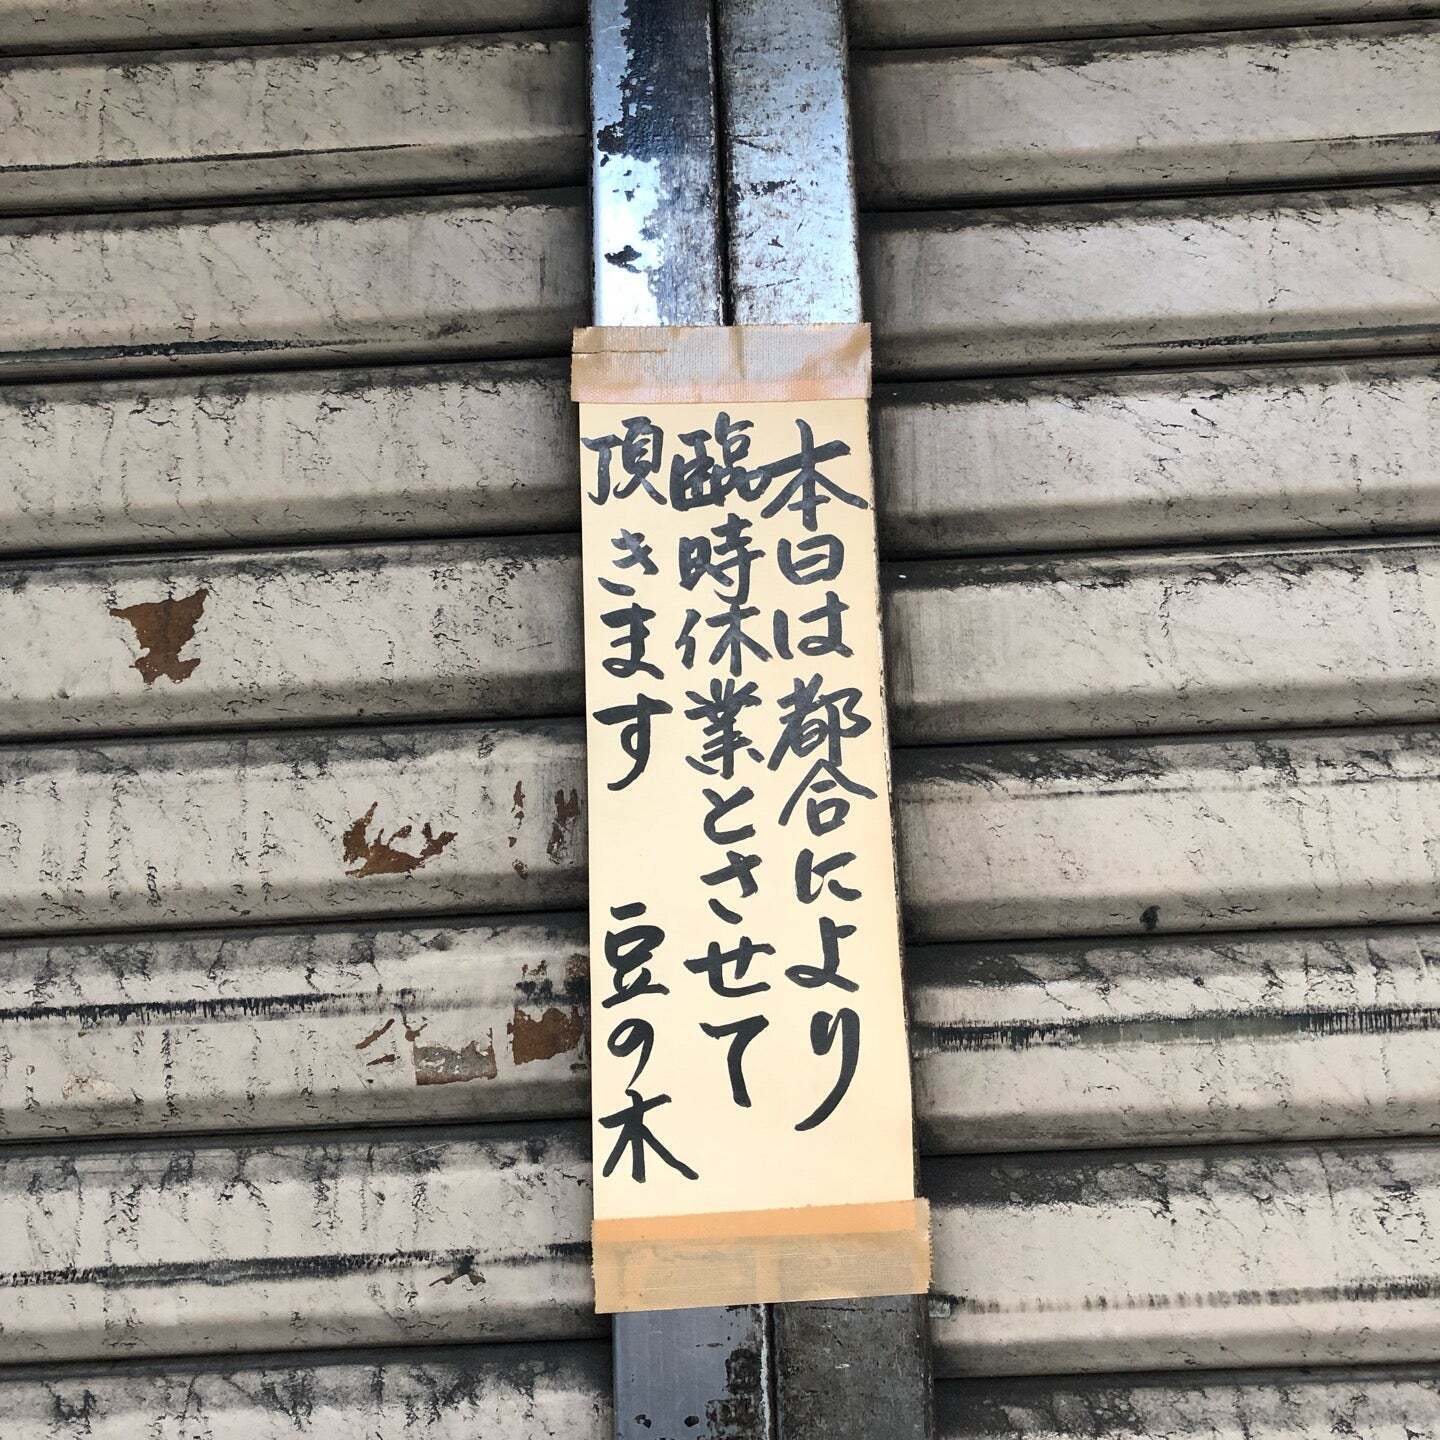 本日は都合により
臨時休業とさせて
頂きます　豆の木